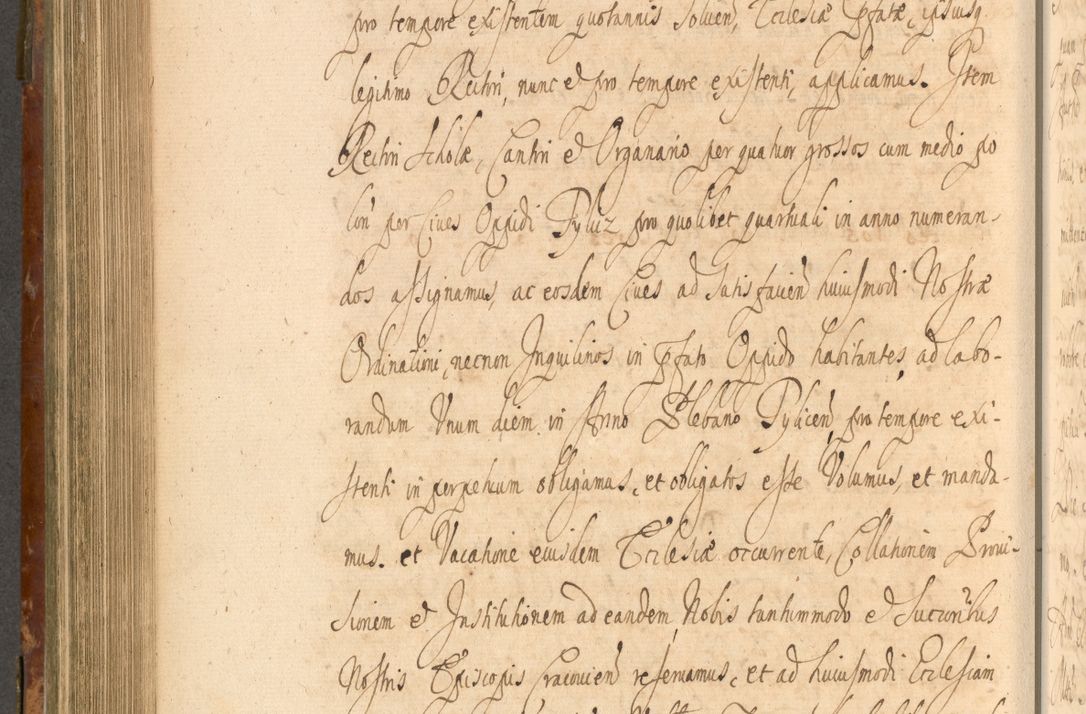 pro tempore existentem quotannis Soluen, Ecclesiæ Pfatæ, ipsiusq
legitimo Rectori, nunc et pro tempore existenti, applicamus. Item
Rectori Scholæ, Cantori et Organario per quatuor grossos cum medio po
lon per Ciues Oppidi Pyluz pro quolibet quartuali in anno numeran-
dos assignamus, ac eosdem Ciues ad Satisfacien huiusmodi Nostræ
Ordinationi, necnon Inquilinos in Pfato Oppido habitantes ad labo-
randum Vnum diem in Anno Plebano Pylicen pro tempore exi-
stenti in perpetuum obligamus, et obligatos esse Volumus, et manda-
mus. et Vacatione eiusdem Ecclesiæ occurrente, Collationem Proui-
sionem et Institutionem ad eandem Nobis tantummodo et Successoribus
Nostris Episcopis Cracouien reseruamus, et ad huiusmodi Ecclesiam